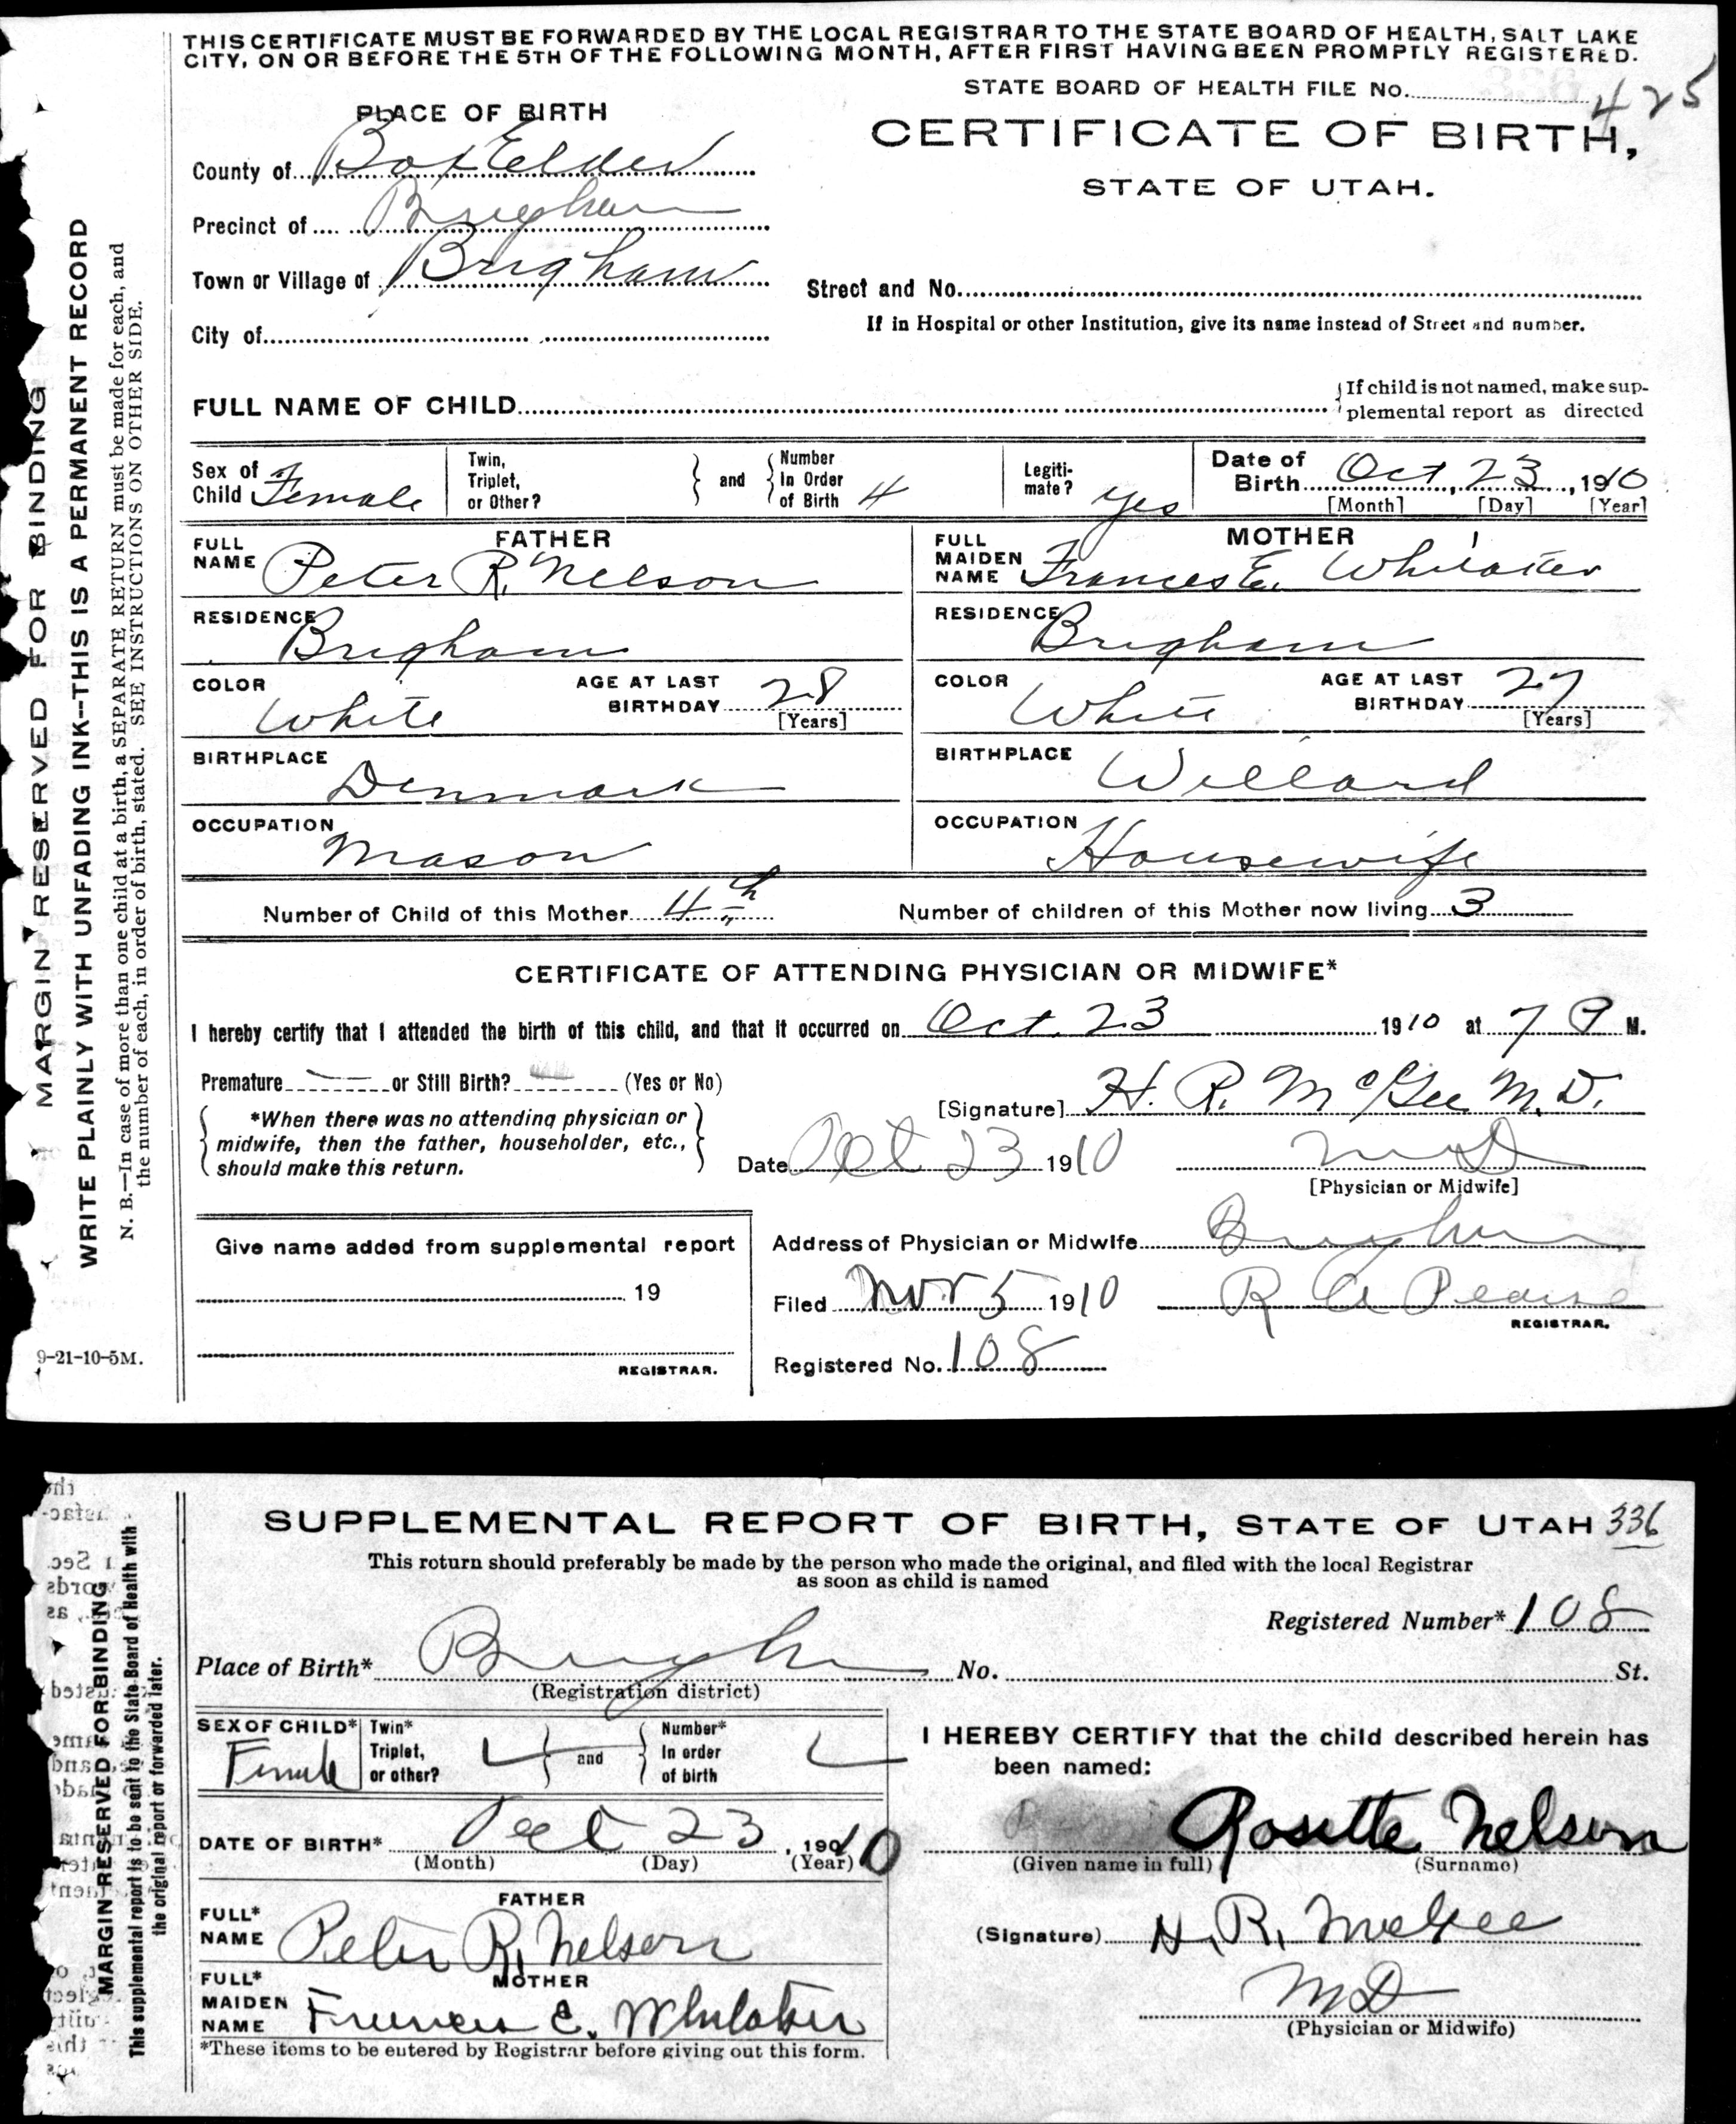 THIS CERTIFICATE MUST BE FORWARDED BY THE LOCAL REGISTRAR TO THE STATE BOARD OF HEALTH, SALT LAKE
CITY, ON OR BEFORE THE 5TH OF THE FOLLOWING MONTH, AFTER FIRST HAVING BEEN PROMPTLY REGISTERED.
STATE BOARD OF HEALTH FILE No. 425
PLACE OF BIRTH
CERTIFICATE OF BIRTH,
STATE OF UTAH.
County of Box Elder
Precinct of Brigham
Town or Village of Brigham
Street and No.
If in Hospital or other Institution, give its name instead of Street and number.
City of
FULL NAME OF CHILD
If child is not named, make sup-
plemental report as directed
Sex of Child Female
Twin, Triplet, or Other?
and
Number In Order of Birth 4
Legiti-mate? yes
Date of Birth Oct, 23, 1910
[Month] [Day] [Year]
FATHER
FULL NAME Peter R. Nelson
RESIDENCE Brigham
COLOR White
AGE AT LAST BIRTHDAY 28
[Years]
BIRTHPLACE Denmark
OCCUPATION Mason
MOTHER
FULL MAIDEN NAME Frances E. Whitaker
RESIDENCE Brigham
COLOR White
AGE AT LAST BIRTHDAY 27
[Years]
BIRTHPLACE Willard
OCCUPATION Housewife
Number of Child of this Mother 4th
Number of children of this Mother now living 3
CERTIFICATE OF ATTENDING PHYSICIAN OR MIDWIFE*
I hereby certify that I attended the birth of this child, and that it occurred on Oct. 23 1910 at 7 P M.
Premature or Still Birth? (Yes or No)
*When there was no attending physician or
midwife, then the father, householder, etc.,
should make this return.
[Signature] H. R. McGee M.D.
Date Oct 23 1910
MD
[Physician or Midwife]
Give name added from supplemental report
19
REGISTRAR.
Address of Physician or Midwife Brigham
Filed Nov 5 1910
R A Pearse
REGISTRAR.
Registered No. 108
MARGIN RESERVED FOR BINDING
WRITE PLAINLY WITH UNFADING INK--THIS IS A PERMANENT RECORD
N. B.—In case of more than one child at a birth, a SEPARATE RETURN must be made for each, and
the number of each, in order of birth, stated. SEE INSTRUCTIONS ON OTHER SIDE.
9-21-10-5M.
SUPPLEMENTAL REPORT OF BIRTH, STATE OF UTAH 336
This return should preferably be made by the person who made the original, and filed with the local Registrar
as soon as child is named
Registered Number* 108
Place of Birth* Brigham No. St.
(Registration district)
SEX OF CHILD* Female
Twin* Triplet, or other?
and
Number* In order of birth
DATE OF BIRTH* Oct 23, 1910
(Month) (Day) (Year)
FATHER
FULL* NAME Peter R. Nelson
MOTHER
FULL* MAIDEN NAME Frances E. Whitaker
*These items to be entered by Registrar before giving out this form.
I HEREBY CERTIFY that the child described herein has
been named:
Rosette Nelson
(Given name in full) (Surname)
(Signature) H. R. McGee
MD
(Physician or Midwife)
MARGIN RESERVED FOR BINDING
This supplemental report is to be sent to the State Board of Health with
the original report or forwarded later.